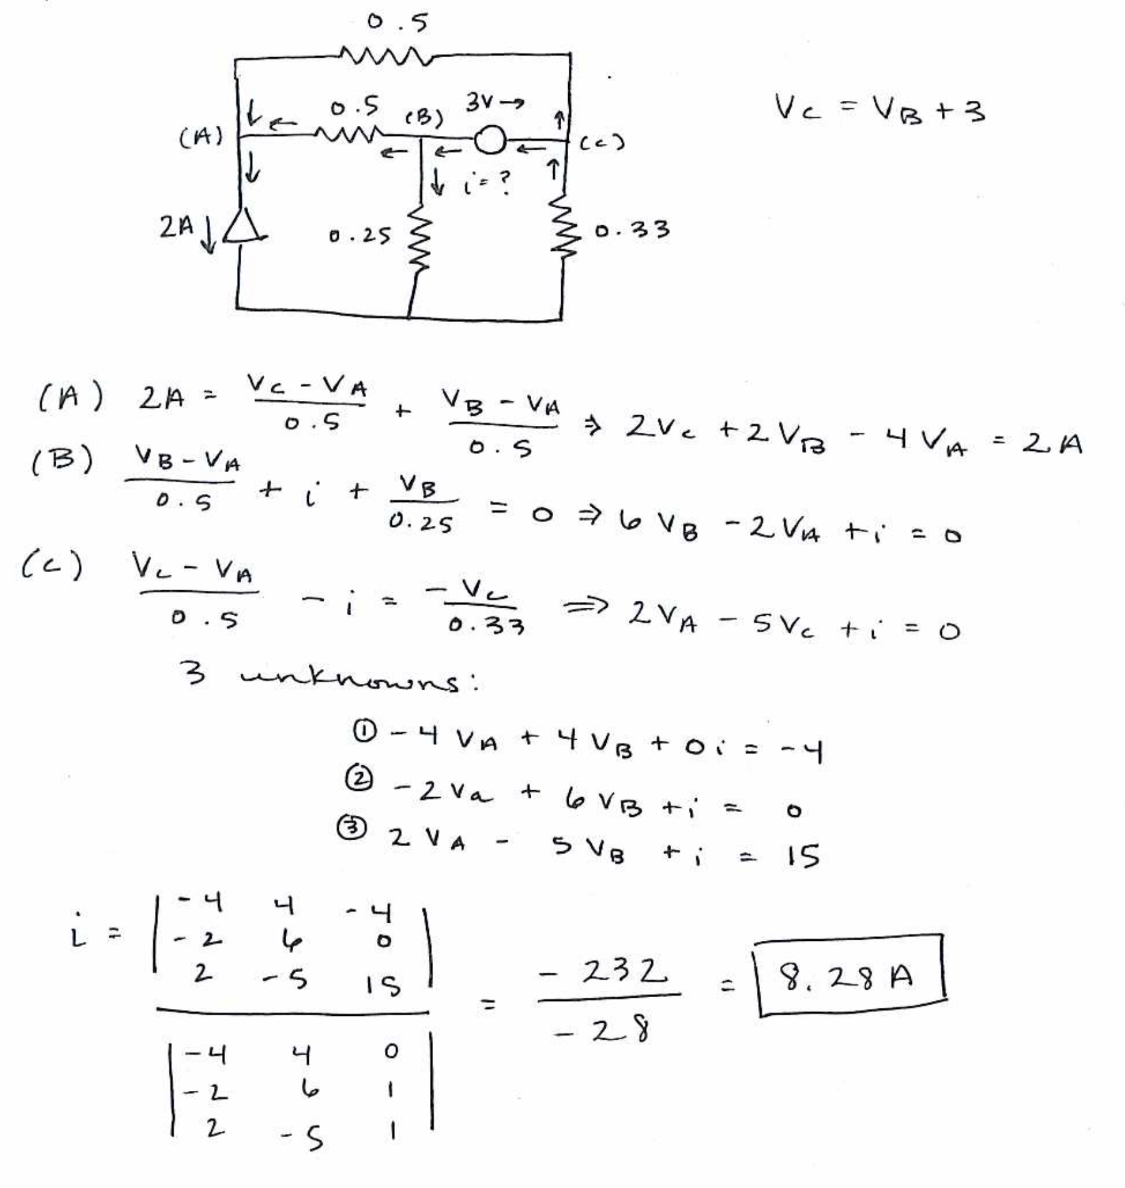 0.5
Vc = VB + 3
(A) 0.5 (B) 3V→ (c)
2A↓ 0.25 i=? 0.33
(A) 2A = Vc - VA / 0.5 + VB - VA / 0.5 ⇒ 2Vc + 2VB - 4VA = 2A
(B) VB - VA / 0.5 + i + VB / 0.25 = 0 ⇒ 6VB - 2VA + i = 0
(c) Vc - VA / 0.5 - i = -Vc / 0.33 ⇒ 2VA - 5Vc + i = 0
3 unknowns:
① -4VA + 4VB + 0i = -4
② -2Va + 6VB + i = 0
③ 2VA - 5VB + i = 15
i = | -4 4 -4 |
| -2 6 0 |
| 2 -5 15 |
| -4 4 0 |
| -2 6 1 |
| 2 -5 1 |
= -232 / -28 = 8.28A